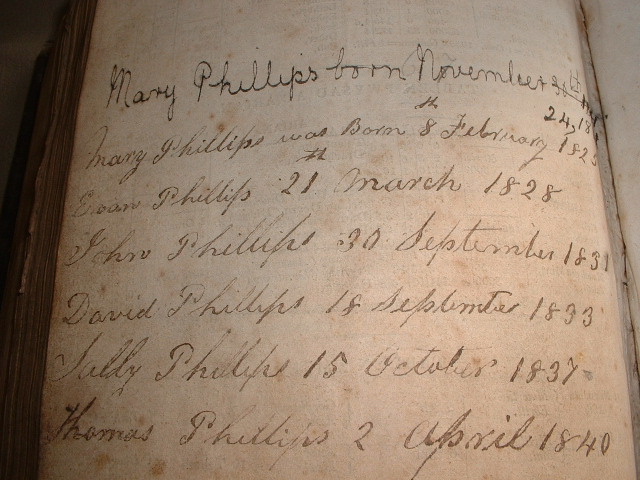 Mary Phillips born November
24, 18
Mary Phillips was Born 8th February 1825
Evan Phillips 21st March 1828
John Phillips 30 September 1831
David Phillips 18 September 1833
Sally Phillips 15 October 1837
Thomas Phillips 2 April 1840